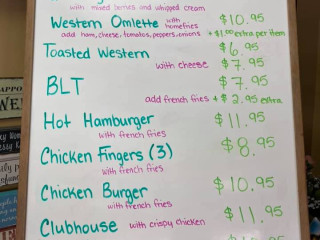 with mixed berries and whipped cream
Western Omlette with homefries $10.95
add ham, cheese, tomatoes, peppers, onions + $1.00 extra per item
Toasted Western $6.95
with cheese $7.95
BLT $7.95
add french fries + $2.95 extra
Hot Hamburger $11.95
with french fries
Chicken Fingers (3) $8.95
with french fries
Chicken Burger $10.95
with french fries
Clubhouse with crispy chicken $11.95